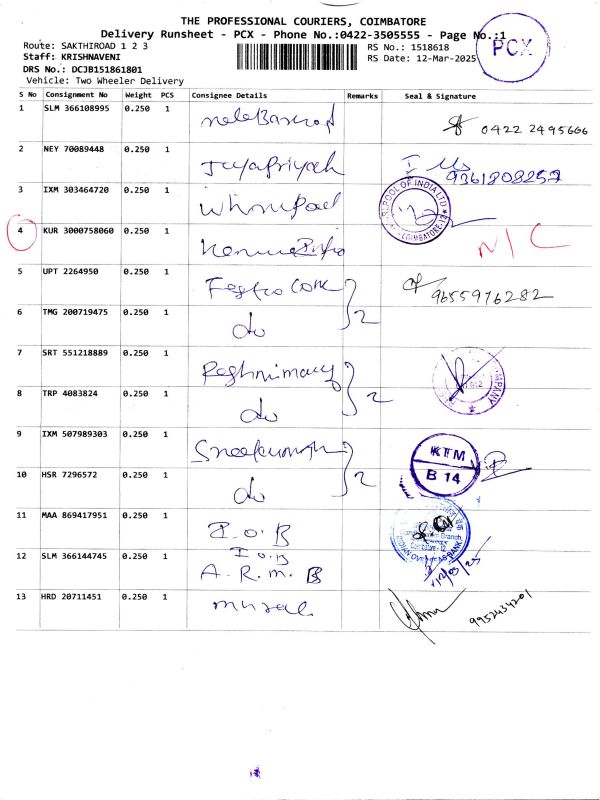 THE PROFESSIONAL COURIERS, COIMBATORE
Delivery Runsheet - PCX - Phone No.:0422-3505555 - Page No.:1
PCX
Route: SAKTHIROAD 1 2 3
RS No.: 1518618
Staff: KRISHNAVENI
RS Date: 12-Mar-2025
DRS No.: DCJB151861801
Vehicle: Two Wheeler Delivery
S No Consignment No Weight PCS Consignee Details Remarks Seal & Signature
1 SLM 366108995 0.250 1 0422 2495666
2 NEY 70089448 0.250 1 Jayapriyah 9361808257
3 IXM 303464720 0.250 1 POOL OF INDIA LTD COIMBATORE-12
4 KUR 3000758060 0.250 1 N/C
5 UPT 2264950 0.250 1 9655976282
6 TMG 200719475 0.250 1 do 2
7 SRT 551218889 0.250 1
8 TRP 4083824 0.250 1 do 2
9 IXM 507989303 0.250 1 KTM
B 14
10 HSR 7296572 0.250 1 do 2
11 MAA 869417951 0.250 1 I.O.B
INDIAN OVERSEAS BANK
Coimbatore - 12
12 SLM 366144745 0.250 1 I.O.B
A.R.M.B
12/03/25
13 HRD 20711451 0.250 1 9952434201